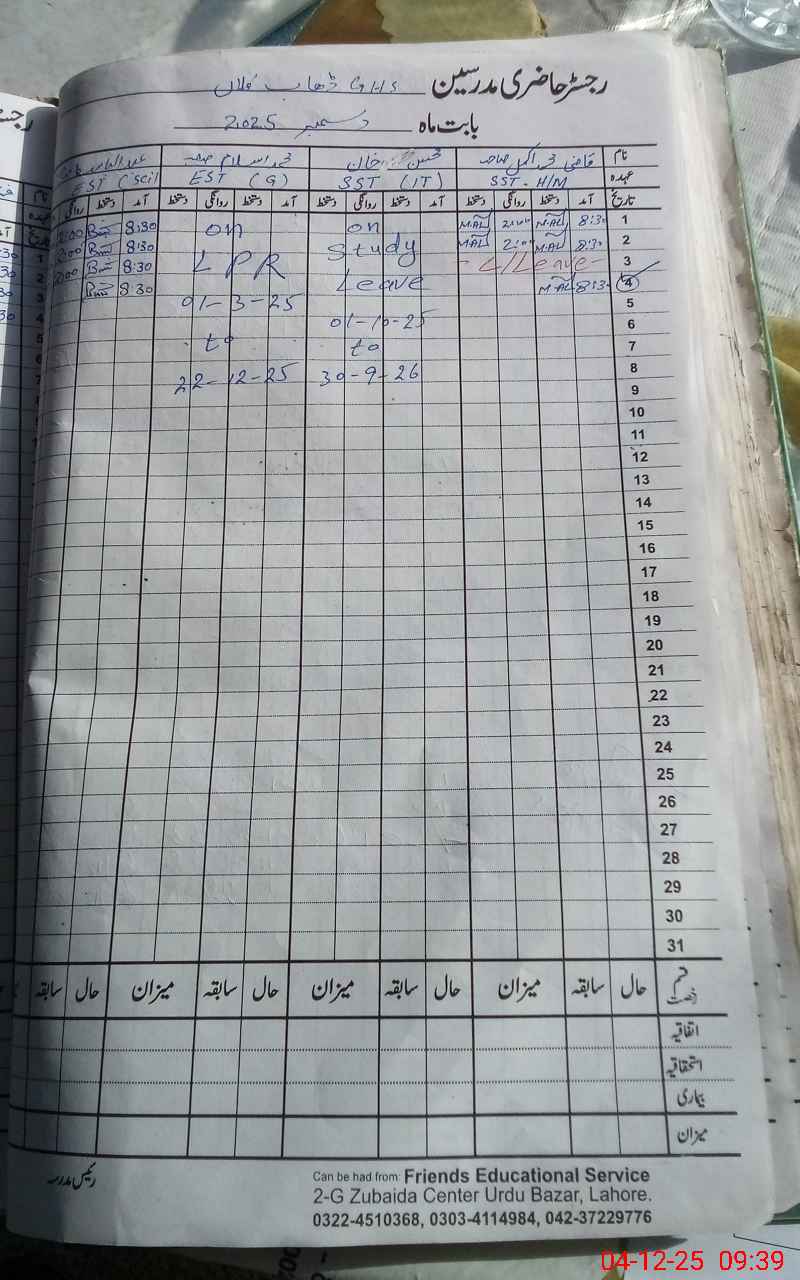 رجسٹر حاضری مدرسین GHS ڈھاب کلاں
بابت ماہ دسمبر 2025
نام قاضی محمد اکمل صاحب محسن خان محمد اسلام صاحب
عہدہ SST-H/M SST (IT) EST (G) EST (Sci)
تاریخ آمد دستخط روانگی دستخط آمد دستخط روانگی دستخط آمد دستخط روانگی دستخط آمد دستخط روانگی
1 8:30 on on 8:30
2 8:30 Study LPR 8:30
3 C/Leave Leave 8:30 2:00
4 8:30 8:30
5 01-3-25
6 01-10-25
7 to to
8 30-9-26 22-12-25
9
10
11
12
13
14
15
16
17
18
19
20
21
22
23
24
25
26
27
28
29
30
31
قسم رخصت حال سابقہ میزان حال سابقہ میزان حال سابقہ میزان حال سابقہ
اتفاقیہ
استحقاقیہ
بیماری
میزان
رئیس مدرسہ
Can be had from: Friends Educational Service
2-G Zubaida Center Urdu Bazar, Lahore.
0322-4510368, 0303-4114984, 042-37229776
04-12-25 09:39